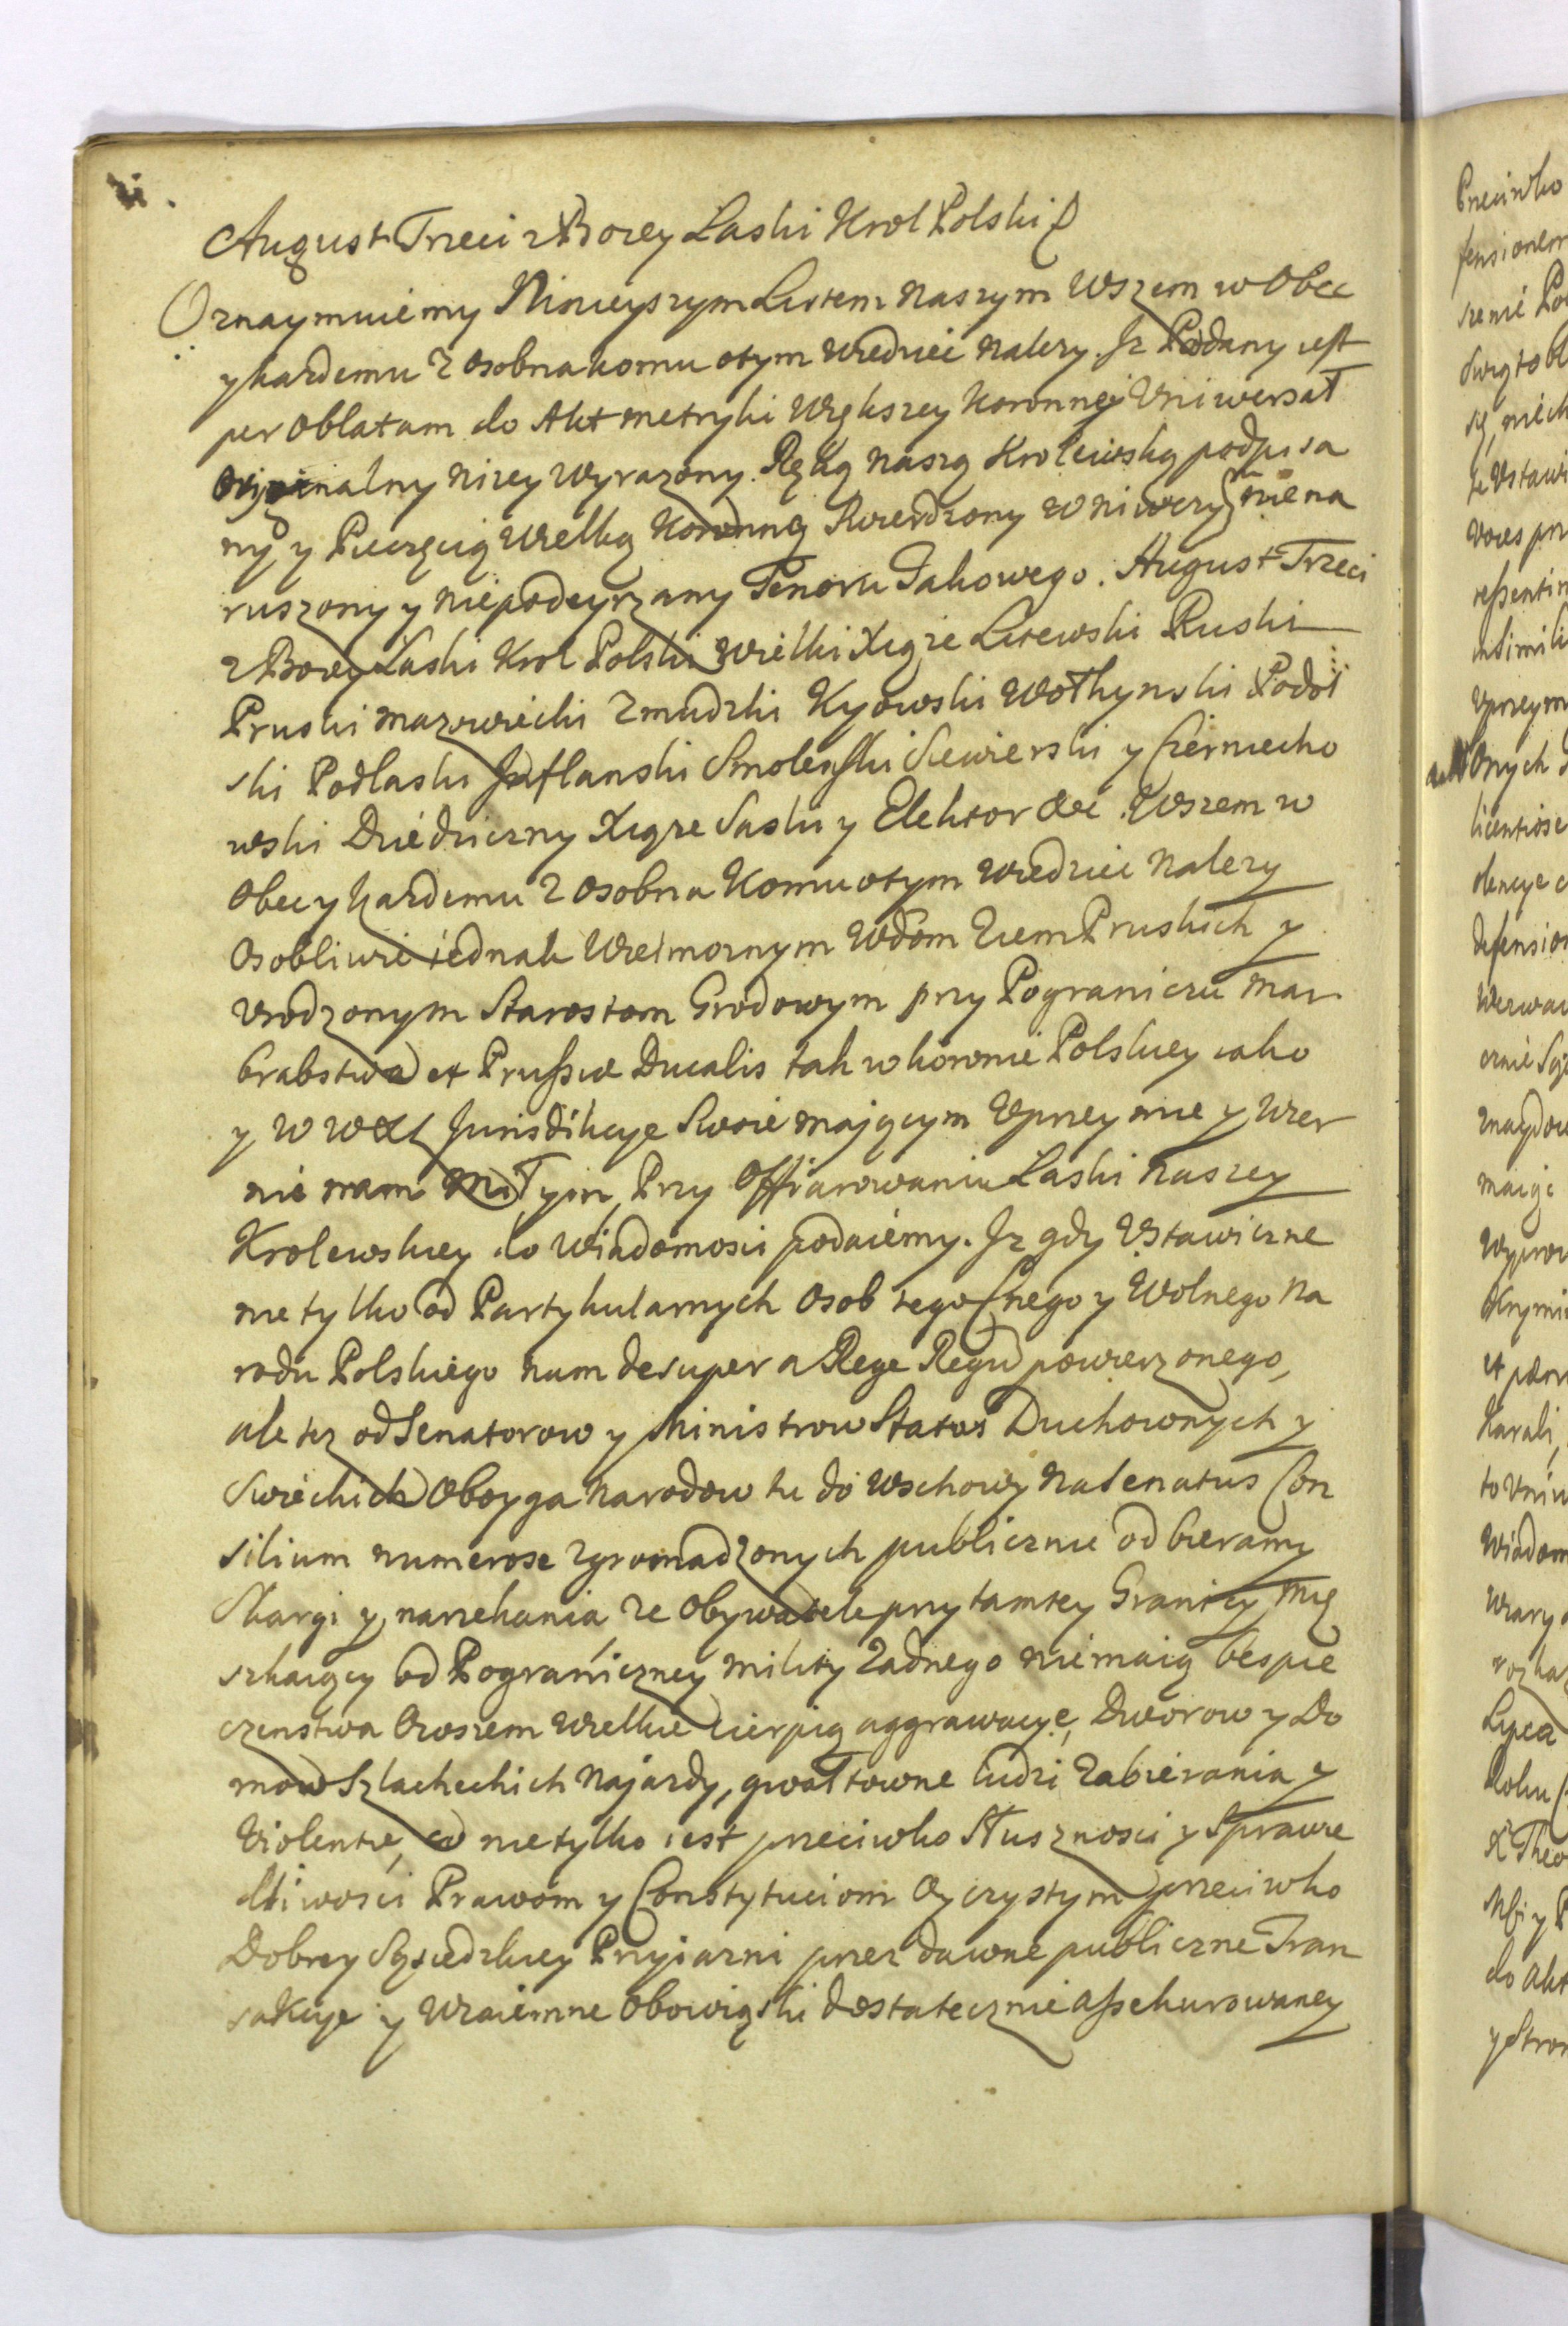 August Trzeci z Bozey Łaski Krol Polski
Oznaymuiemy Ninieyszym Listem Naszym Wszem w Obec
y kazdemu z osobna komu o tym wiedziec nalezy. Iz Podany iest
per Oblatam do Akt Metryki Większey Koronney Uniwersał
Oryginalny nizey wyrazony. Ręką Naszą Krolewską podpisa
ny, y Pieczęcią Wielką Koronną stwierdzony w niwczym nie na
ruszony y niepodeyrzany Tenoru Takowego. August Trzeci
z Bozey Łaski Krol Polski Wielki Xiąze Litewski Ruski
Pruski Mazowiecki Zmudzki Kyowski Wołhynski Podol
ski Podlaski Inflanski Smolenski Siewierski y Czerniecho
wski Dziedziczny Xiąze Saski y Elektor &c. Wszem w
Obec y kazdemu z osobna Komu o tym wiedziec nalezy
Osobliwie iednak Wielmoznym Wdom Ziem Pruskich y
Urodzonym Starostom Grodowym przy Pograniczu Mar
grabstwa et Prussiæ Ducalis tak w koronie Polskiey iako
y w WXL Jurisdikcye Swoie mającym Uprzeymie y Wier
nie nam Miłym, Przy Offiarowaniu Łaski Naszey
Krolewskiey do wiadomosci podaiemy. Iz gdy Ustawiczne
nie tylko od Partykularnych Osob tego Cnego y Wolnego Na
rodu Polskiego nam desuper a Rege Regu powierzonego,
ale tez od Senatorow y Ministrow Status Duchownych y
Swieckich Oboyga Narodow tu do Wschowy na Senatus Con
silium numerose zgromadzonych publicznie odbieramy
Skargi y narzekania ze Obywatele przy tamtey Granicy mie
szkaiący od Pograniczney milicy zadnego nie maią bespie
czenstwa Owszem wielkie cierpią aggrawacye, Dworow y Do
mow Szlacheckich najazdy, gwałtowne ludzi zabierania y
Violentie, co nie tylko iest przeciwko Słusznosci y Sprawie
dliwosci Prawom y Constytuciom Oyczystym przeciwko
Dobrey Sąsiedzkiey Przyiazni przez dawne publiczne Tran
sakcye y wzaiemne Obowiąski dostatecznie assekurowaney